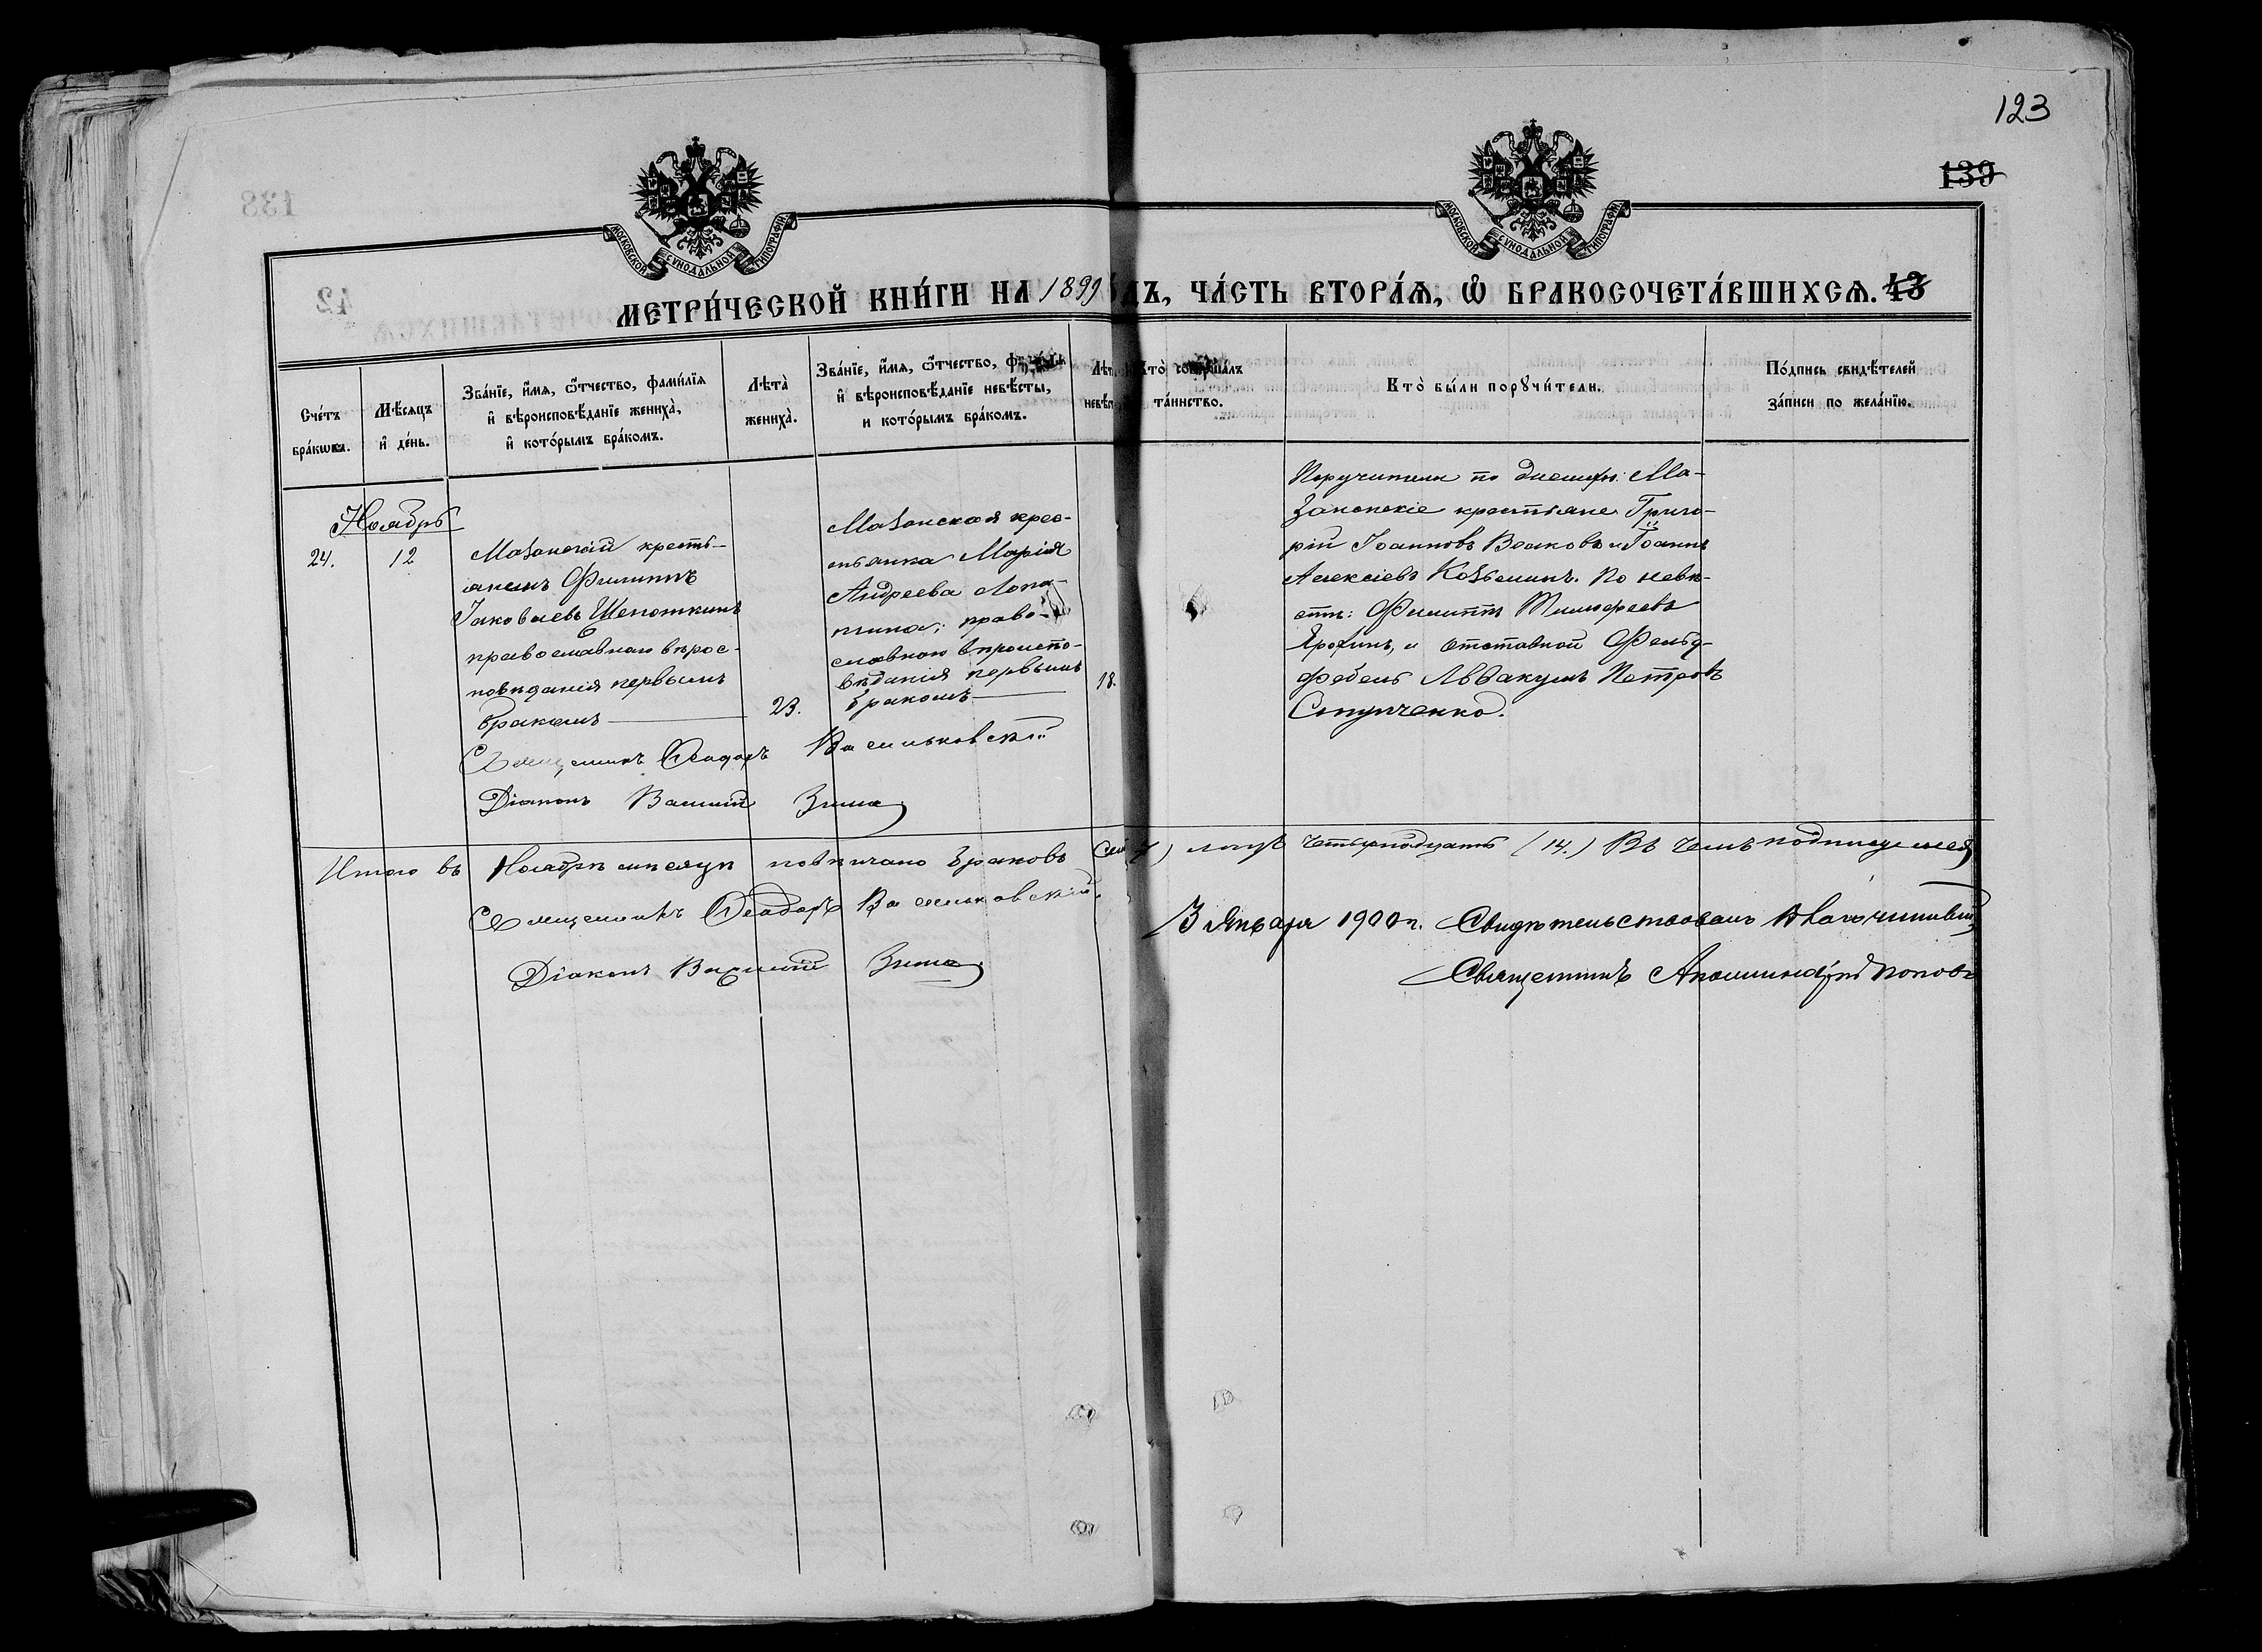 123
139
МОСКОВСКОЙ СѴНОДАЛЬНОЙ ТИПОГРАФІИ
МОСКОВСКОЙ СѴНОДАЛЬНОЙ ТИПОГРАФІИ
МЕТРИ́ЧЕСКОЙ КНИ́ГИ НА 1899 ГОДЪ, ЧА́СТЬ ВТОРА́Ѧ, Ѡ҆ БРАКОСОЧЕТА́ВШИХСѦ. 43
Сче́тъ бра́кѡвъ.
Мѣ́сѧцъ и҆ де́нь.
Зва́нїе, и҆́мѧ, ѻ҆́тчество, фами́лїѧ
и҆ вѣроисповѣ́данїе жениха̀,
и҆ кото́рымъ бра́комъ.
Лѣта̀ жениха̀.
Зва́нїе, и҆́мѧ, ѻ҆́тчество, фами́лїѧ
и҆ вѣроисповѣ́данїе невѣ́сты,
и кото́рымъ бра́комъ.
Лѣта̀ невѣ́сты
Кто̀ соверша́лъ та́инство.
Кто̀ бы́ли порꙋчи́тели.
По́дпись свидѣ́телей за́писи по жела́нїю.
Ноябрь
24.
12
Мазанскій кресть-
янинъ Филиппъ
Іаковлевъ Шепоткинъ
православнаго вѣрос-
повѣданія первымъ
бракомъ
23.
Мазанская крес-
тьянка Марія
Андреева Лопа-
тина; право-
славнаго вѣроиспо-
вѣданія первымъ
бракомъ
18.
Поручители по женихѣ: Ма-
занскіе крестьяне Григо-
рій Іоанновъ Волковъ и Іоаннъ
Алексіевъ Козьминъ. По невѣ-
стѣ: Филиппъ Тимофеевъ
Ярохинъ, и отставной Фельд-
фебель Аввакумъ Петровъ
Ступченко.
Священникъ Ѳеодоръ Васильковскій
Діаконъ Василій Зима
Итого въ Ноябрѣ мѣсяцѣ повѣнчано браковъ 7) лицъ четырнадцать (14.) Въ чемъ подписуемся
Священникъ Ѳеодоръ Васильковскій.
Діаконъ Василій Зима
3 Января 1900 г. Свидѣтельствовалъ Благочинный,
Священникъ Аполлинарій Поповъ